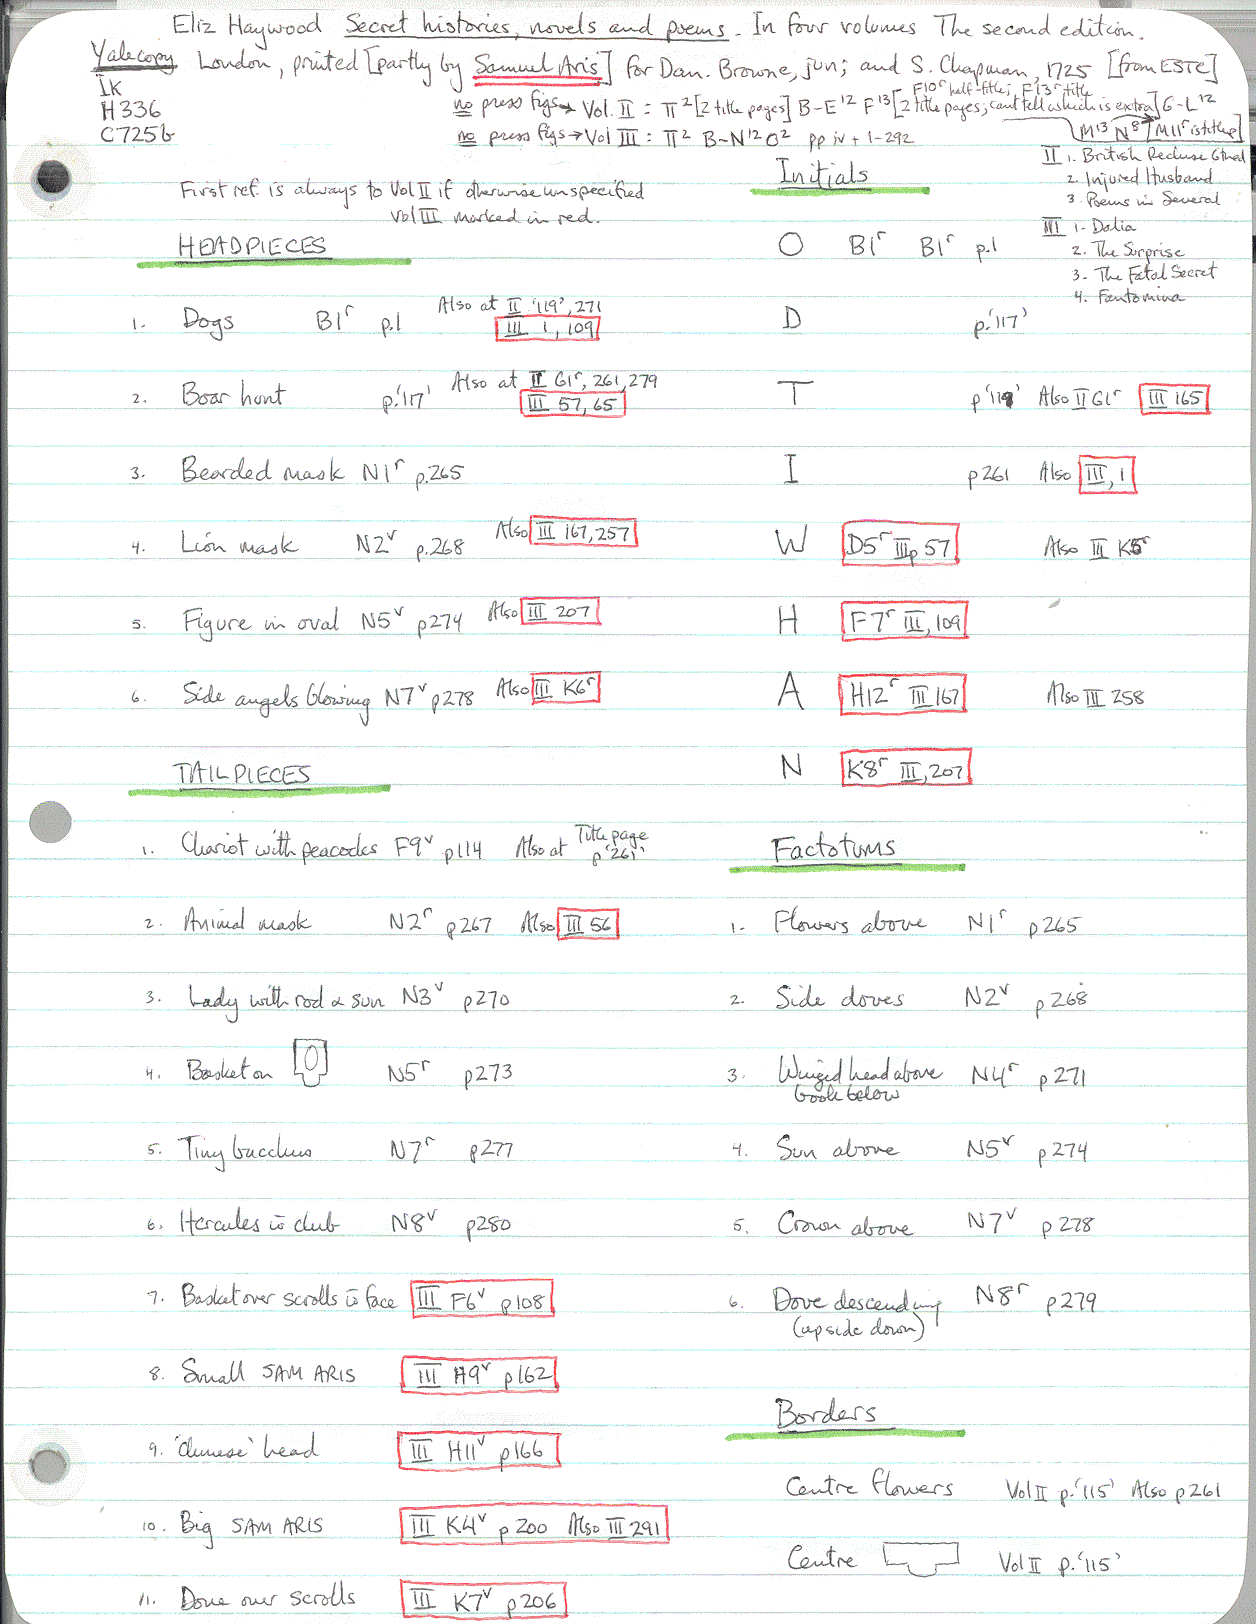 Eliz Haywood Secret histories, novels and poems. In four volumes The second edition.
Yale copy London, printed [partly by Samuel Aris] for Dan. Browne, jun; and S. Chapman, 1725 [from ESTC]
Ik
H336
C725b
F10r half-title; F13r title
no press figs → Vol. II = π² [2 title pages] B-E¹² F¹³ [2 title pages; can't tell which is extra] G-L¹²
M¹³ N⁸ [M11r is title p]
no press figs → Vol III = π² B-N¹² O² pp iv + 1-292
First ref. is always to Vol II if otherwise unspecified
Vol III marked in red.
II 1. British Recluse
2. Injured Husband
3. Poems in Several
III 1. Dalia
2. The Surprise
3. The Fatal Secret
4. Fantomina
HEADPIECES
1. Dogs B1r p.1 Also at II '119', 271
III 1, 109
2. Boar hunt p.'117' Also at II G1r, 261, 279
III 57, 65
3. Bearded mask N1r p.265
4. Lion mask N2v p.268 Also III 167, 257
5. Figure in oval N5v p274 Also III 207
6. Side angels blowing N7v p278 Also III K6r
TAILPIECES
1. Chariot with peacocks F9v p114 Also at Title page
p '261'
2. Animal mask N2r p267 Also III 56
3. Lady with rod & sun N3v p270
4. Basket on N5r p273
5. Tiny bacchus N7r p277
6. Hercules w̄ club N8v p280
7. Basket over scrolls w̄ face III F6v p108
8. Small SAM ARIS III H9v p162
9. 'Chinese' head III H11v p166
10. Big SAM ARIS III K4v p200 Also III 291
11. Dove over scrolls III K7v p206
Initials
O B1r B1r p.1
D p.'117'
T p '119' Also II G1r III 165
I p261 Also III, 1
W D5r III p 57 Also II K5r
H F7r III, 109
A H12r III 167 Also III 258
N K8r III, 207
Factotums
1. Flowers above N1r p265
2. Side doves N2v p268
3. Winged head above N4r p271
book below
4. Sun above N5v p274
5. Crown above N7v p278
6. Dove descending N8r p279
(upside down)
Borders
Centre flowers Vol II p.'115' Also p261
Centre Vol II p.'115'